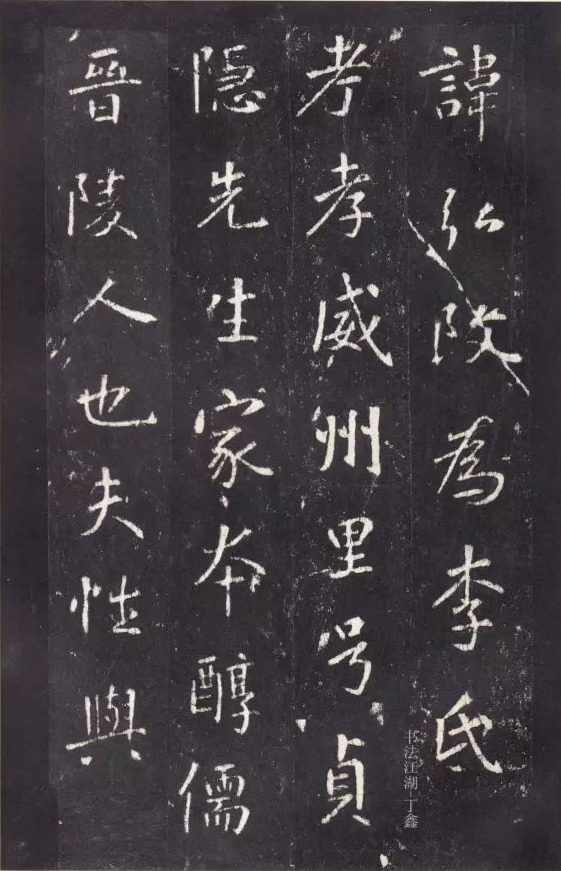 諱弘改為李氏
考孝威州里号貞
隐先生家本醇儒
晉陵人也夫性與
书法江湖-丁鑫